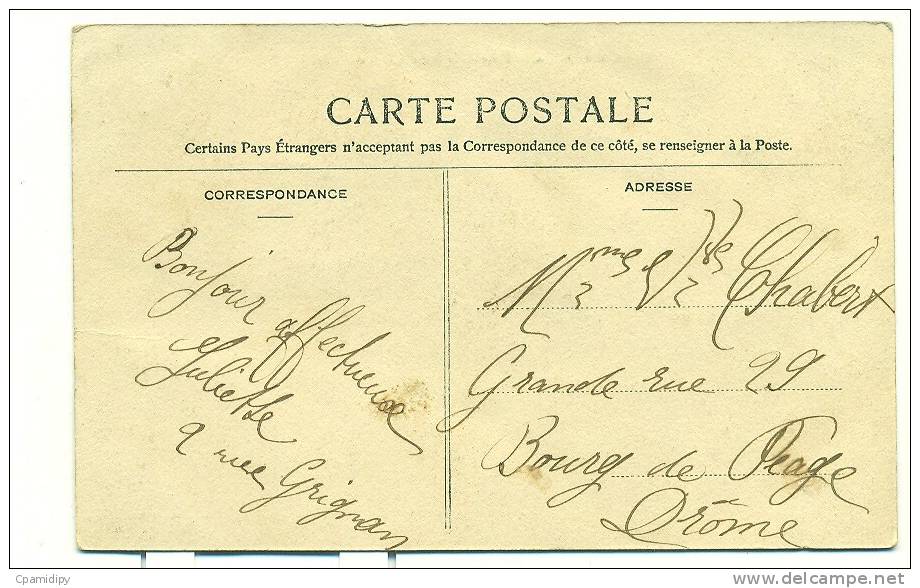 CARTE POSTALE
Certains Pays Étrangers n'acceptant pas la Correspondance de ce côté, se renseigner à la Poste.
CORRESPONDANCE
Bonjour
affectueux
Juliette
9 rue Grignan
ADRESSE
Chabert
Grande rue 29
Bourg de Péage
Drôme
Cpamidipy
www.delcampe.net